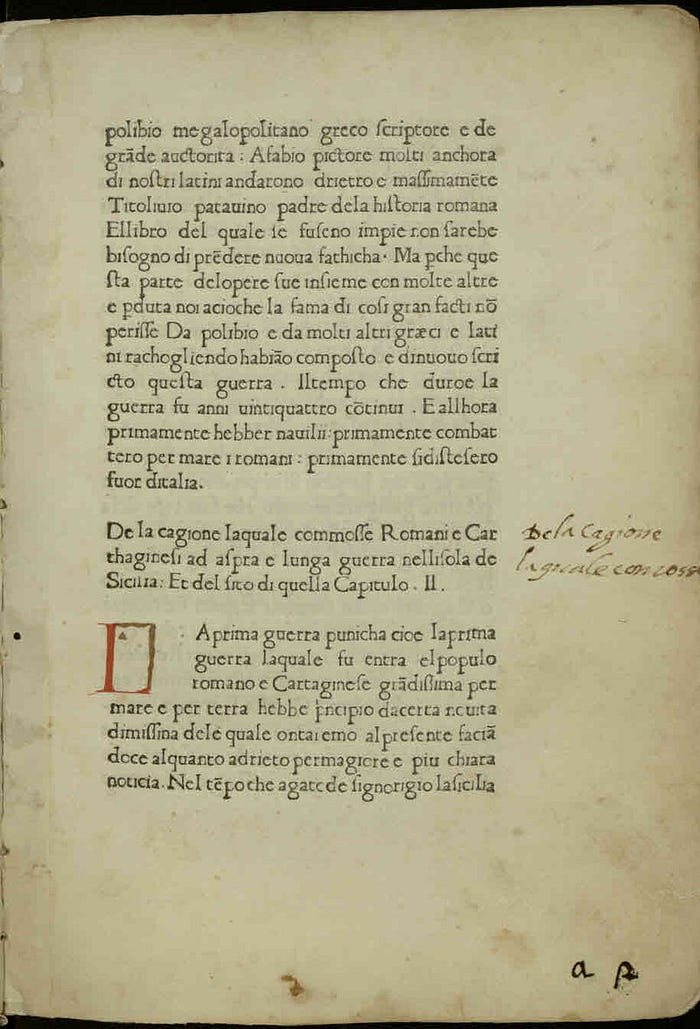 polibio megalopolitano greco ſcriptore e de
grāde auctorita : Afabio pictore molti anchora
di noſtri latini andarono drietro e maſſimamēte
Titoliuio patauino padre dela hiſtoria romana
Ellibro del quale ſe fuſeno impie non ſarebe
biſogno di prēdere nuoua fathicha · Ma ꝑche que
ſta parte delopere ſue inſieme con molte altre
e ꝑduta noi acioche la fama di coſi gran facti nō
periſſe Da polibio e da molti altri græci e lati
ni rachogliendo habiāo compoſto e dinuouo ſcri
cto queſta guerra . Iltempo che duroe la
guerra fu anni uintiquattro cōtinui . E allhora
primamente hebber nauilii : primamente combat
tero per mare i romani : primamente ſidiſteſero
fuor ditalia.
De la cagione laquale commoſſe Romani e Car
thagineſi ad aſpra e lunga guerra nelliſola de
Sicilia: Et del ſito di quella Capitulo . II .
L Aprima guerra punicha cioe laprima
guerra laquale fu entra elpopulo
romano e Cartagineſe grādiſſima per
mare e per terra hebbe principio dacerta
dimiſſina dele quale al preſente faciā
doce alquanto adrieto permagiore e piu chiara
noticia . Nel tēpo che agatcde ſignorigio laſicilia
Dela Cagione
laquale
a p